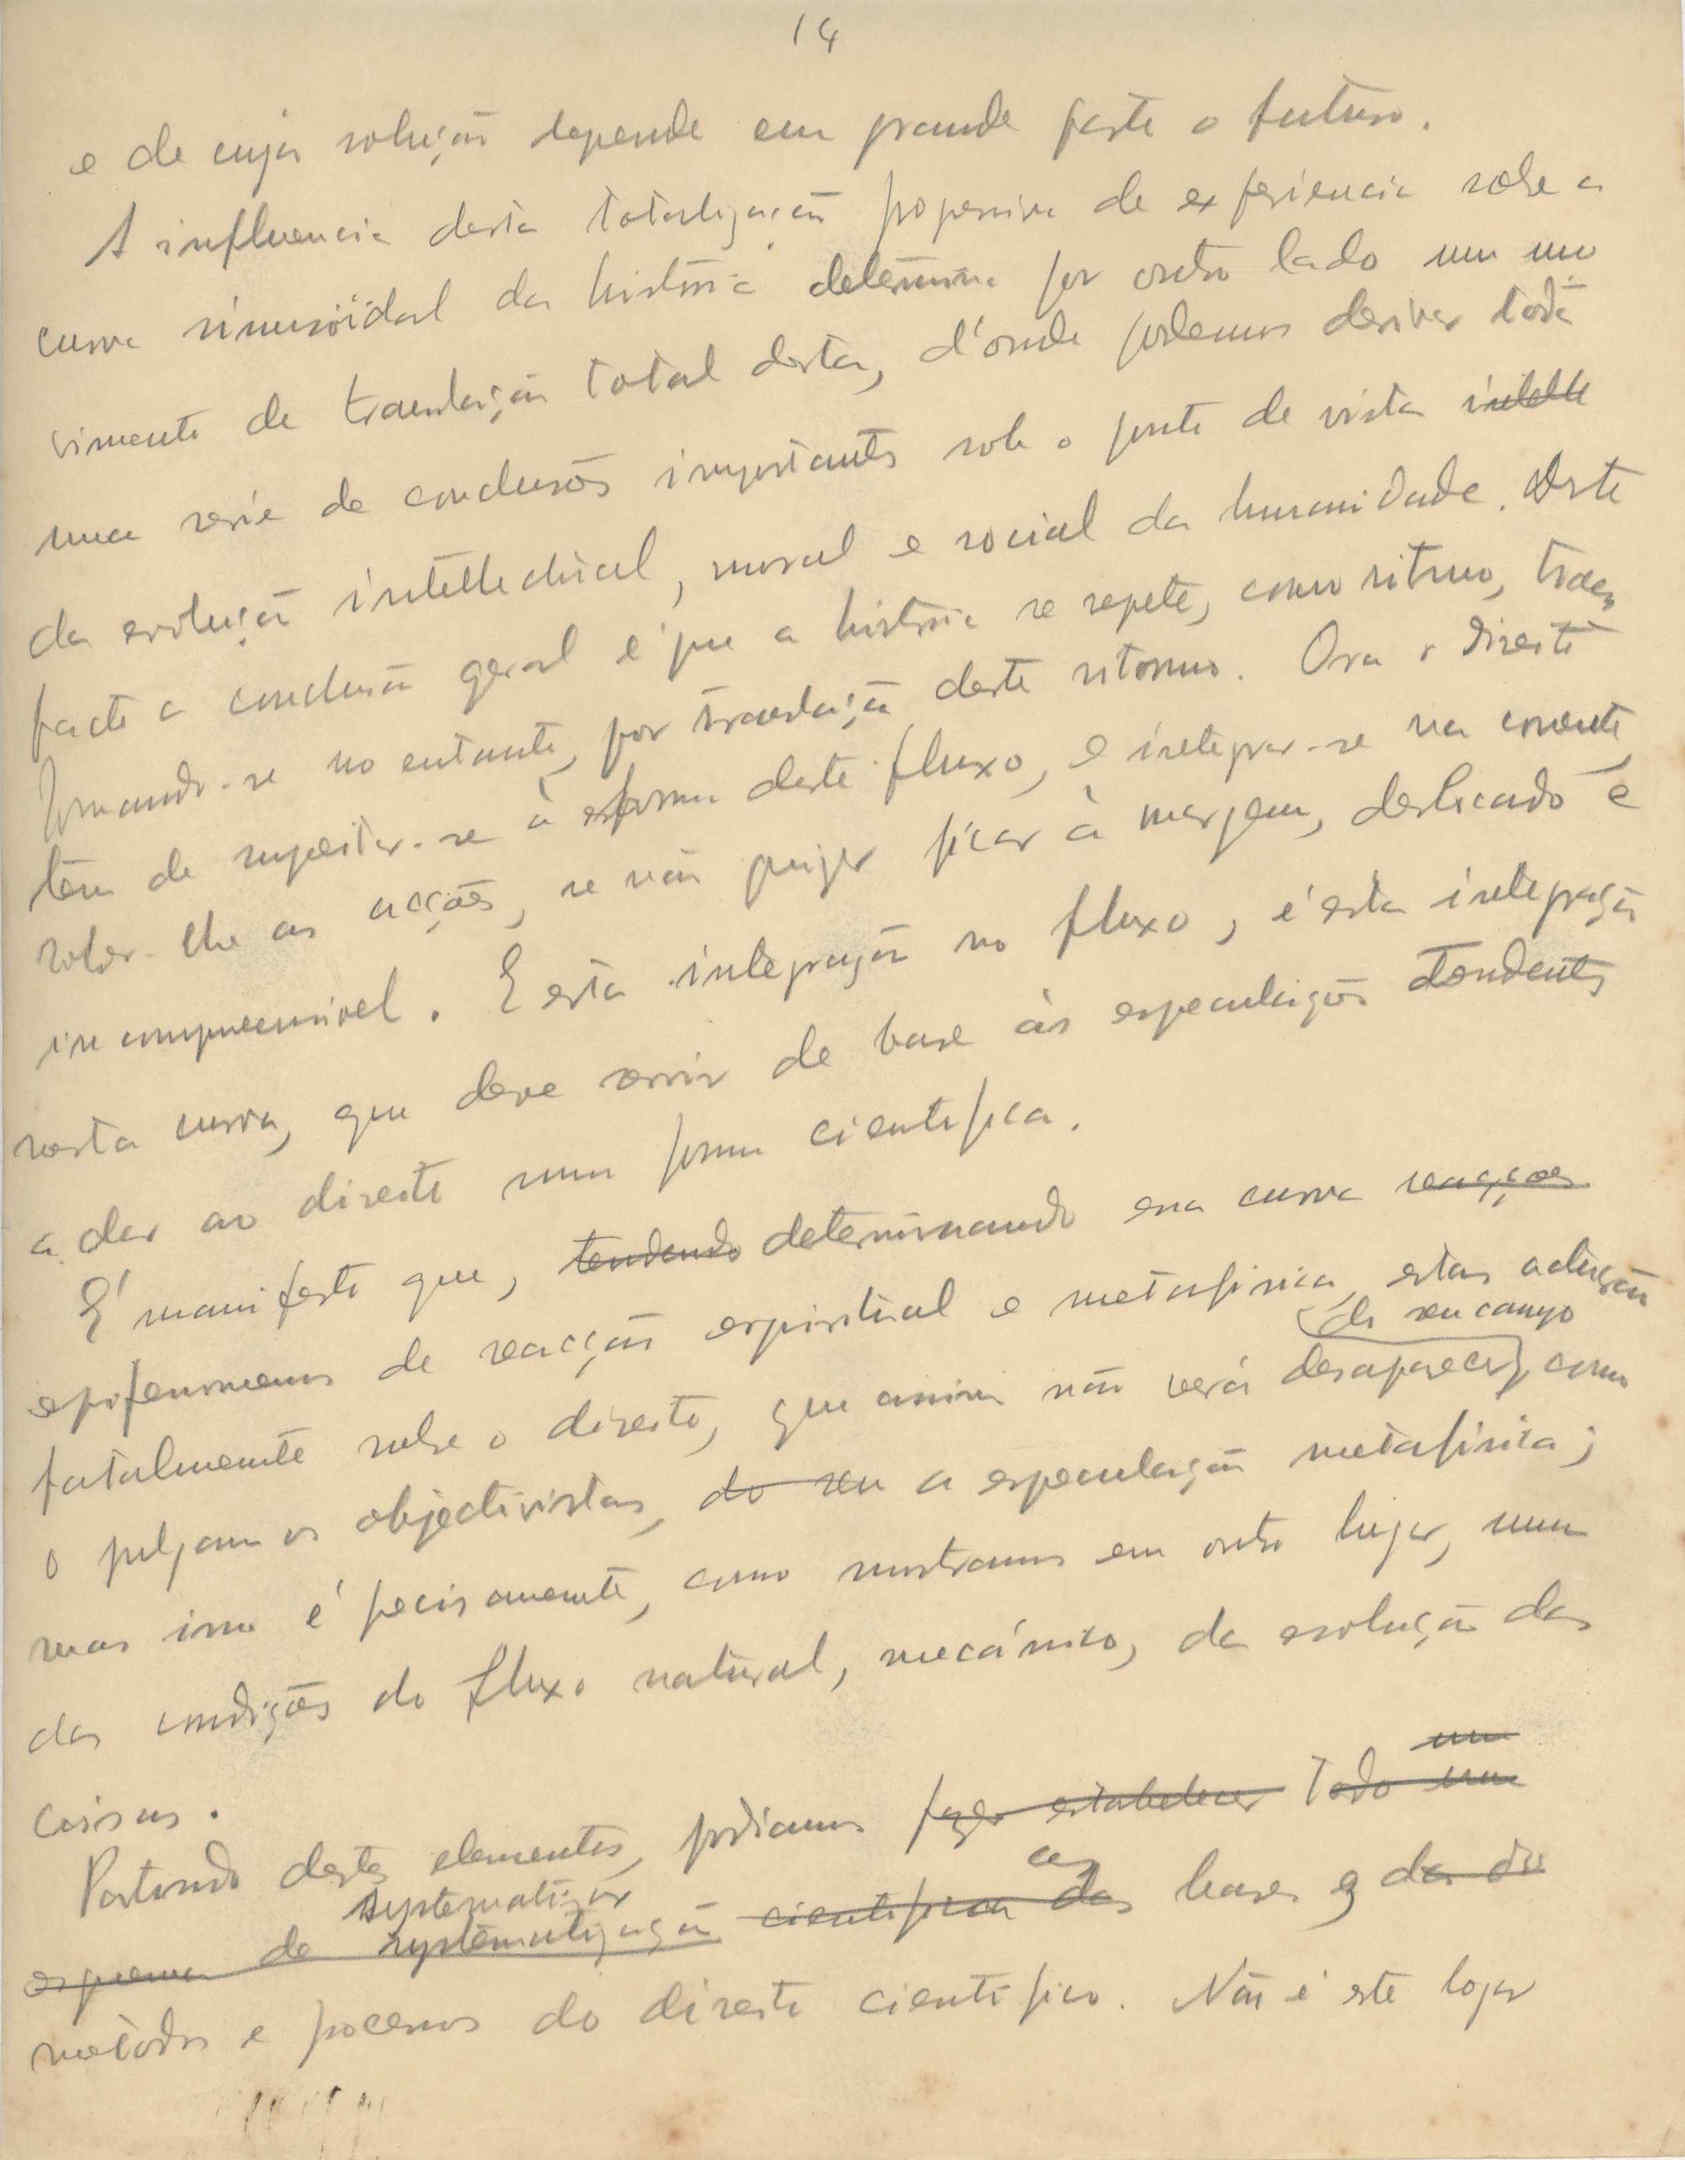 14
e de cuja solução depende em grande parte o futuro.
A influencia desta totalisação progressiva de experiencia sobre a
curva sinusöidal da história determina por outro lado um mo
vimento de translação total desta, d'onde podemos derivar toda
uma serie de conclusões importantes sob o ponto de vista intelle
da evolução intellectual, moral e social da humanidade. Deste
facto a conclusão geral é que a história se repete, como ritmo, trans
formando-se no entanto, por translação deste ritmo. Ora o direito
tem de sujeitar-se à forma deste fluxo, e integrar-se na corrente,
se não quizer ficar à margem, deslocado e
incompreensivel. E esta integração no fluxo, é esta integração
nesta curva, que deve servir de base às especulações tendentes
a dar ao direito uma forma cientifica.
É manifesto que, tendendo determinando essa curva reacções
epifenomenos de reacção espiritual e metafisica, estas actuarão
do seu campo
fatalmente sobre o direito, que assim não verá desaparecer, como
o julgam os objectivistas, do seu a especulação metafisica;
mas isso é precisamente, como mostramos em outro lugar, uma
das condições do fluxo natural, mecánico, da evolução das
coisas.
um
Partindo destes elementos, podiamos fazer estabelecer todo um
systematizar as
esquema de systematização cientifica das bases e da do
metodos e processos do direito cientifico. Não é este logar